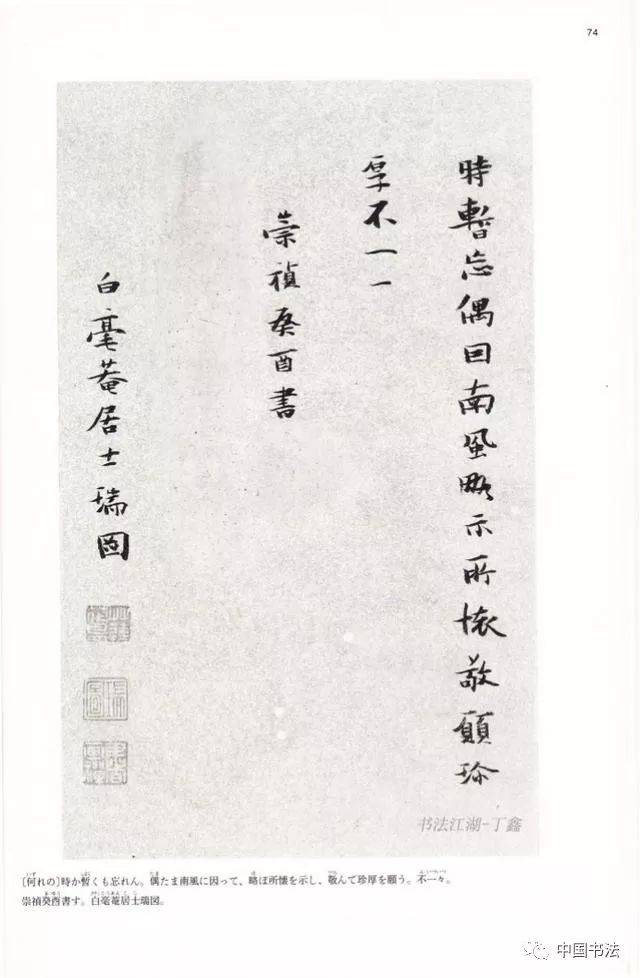 74
時暫忘偶因南風略示所懐敬願珍
厚不一一
崇禎癸酉書
白毫菴居士瑞圖
书法江湖-丁鑫
〔何れの〕時か暫くも忘れん。偶たま南風に因って、略ぼ所懐を示し、敬んで珍厚を願う。不一々。
崇禎癸酉書す。白毫菴居士瑞図。
中国书法